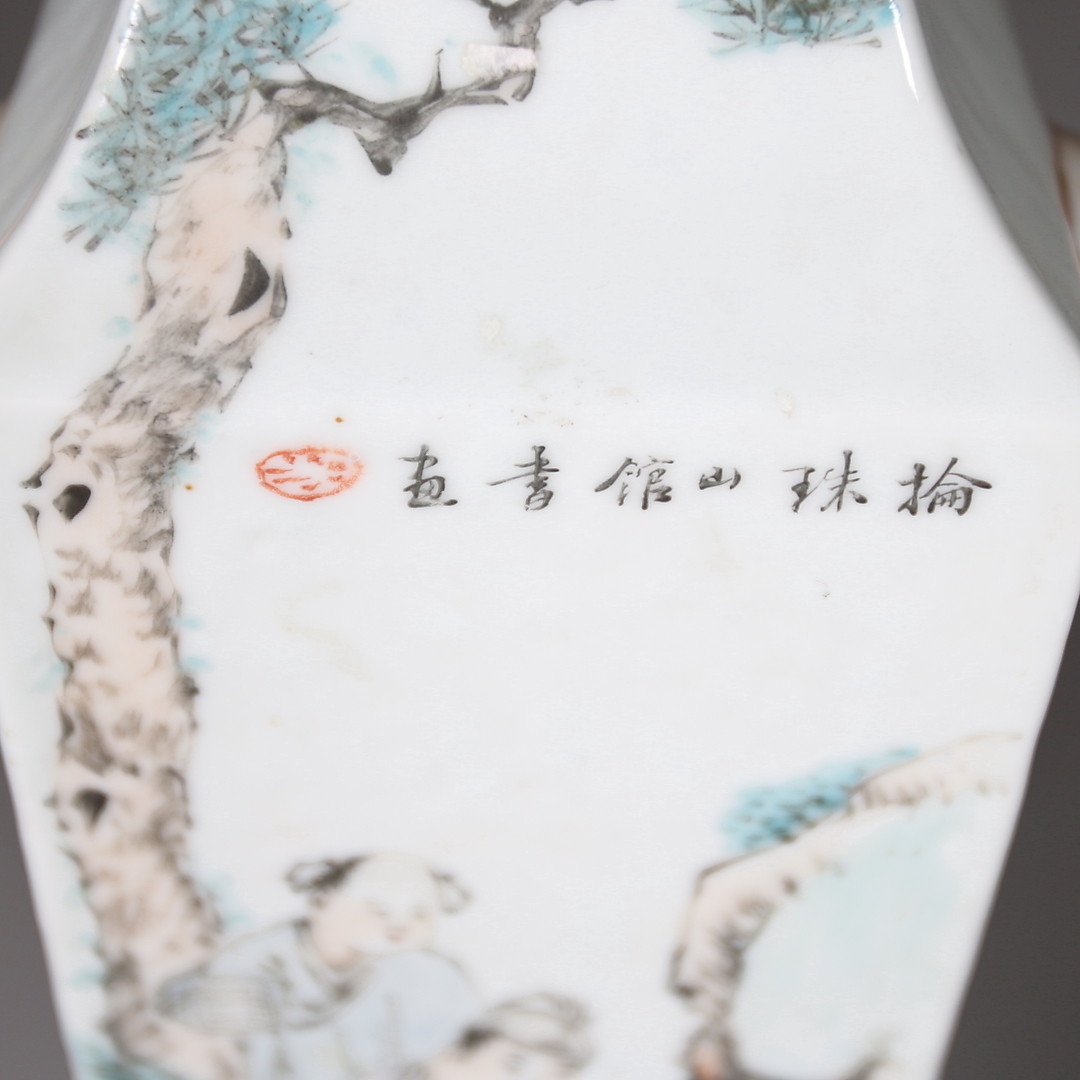 掄珠山館書畫